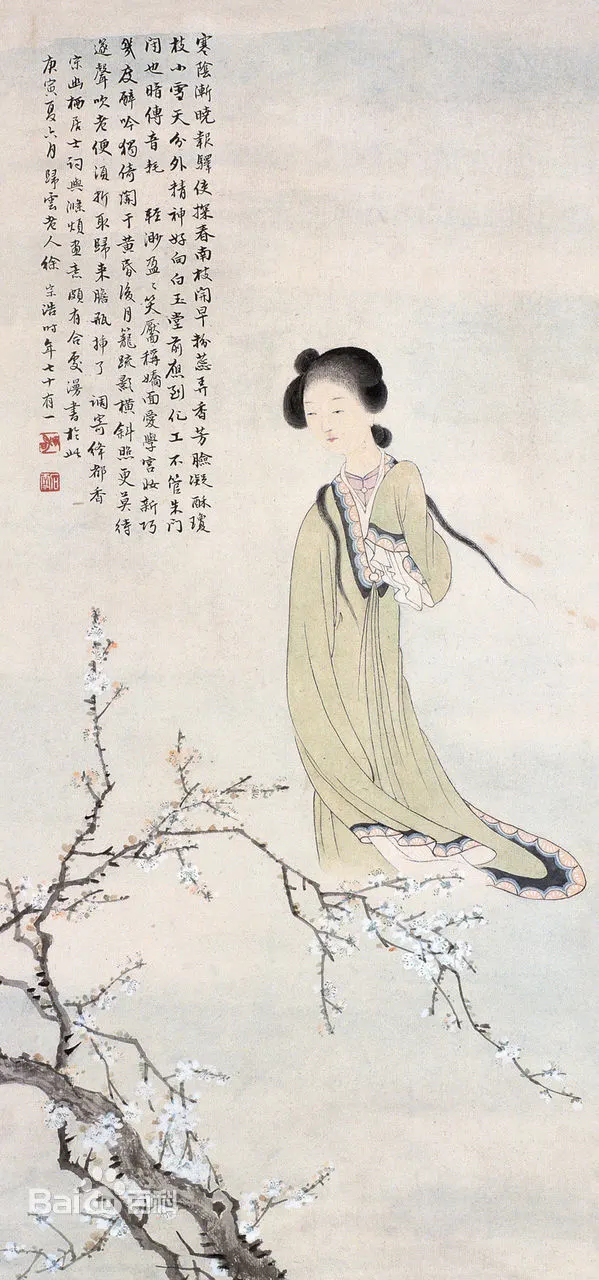 寒陰漸曉報驛使探春南枝開早粉蕊弄香芳臉凝酥瓊
枝小雪天分外精神好向白玉堂前應到化工不管朱門
閉也暗傳音耗 輕渺盈〻笑靨稱嬌面愛學宮妝新巧
幾度醉吟獨倚闌干黃昏後月籠疏影橫斜照更莫待
篴聲吹老便須折取歸來膽瓶插了 調寄絳都春
宋幽栖居士詞與滌煩畫意頗有合處漫書於此
庚寅夏六月歸雲老人徐宗浩時年七十有一
Bai 百科